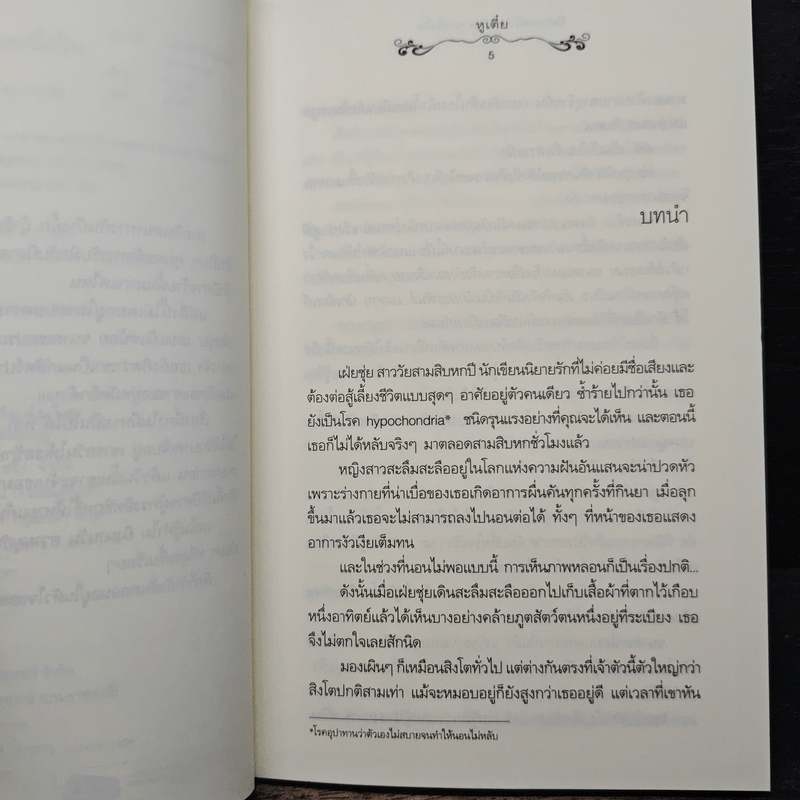 หูเตี๋ย
5
บทนำ
เฝ่ยชุ่ย สาววัยสามสิบหกปี นักเขียนนิยายรักที่ไม่ค่อยมีชื่อเสียงและ
ต้องต่อสู้เลี้ยงชีวิตแบบสุดๆ อาศัยอยู่ตัวคนเดียว ซ้ำร้ายไปกว่านั้น เธอ
ยังเป็นโรค hypochondria* ชนิดรุนแรงอย่างที่คุณจะได้เห็น และตอนนี้
เธอก็ไม่ได้หลับจริงๆ มาตลอดสามสิบหกชั่วโมงแล้ว
หญิงสาวสะลึมสะลืออยู่ในโลกแห่งความฝันอันแสนจะน่าปวดหัว
เพราะร่างกายที่น่าเบื่อของเธอเกิดอาการผื่นคันทุกครั้งที่กินยา เมื่อลุก
ขึ้นมาแล้วเธอจะไม่สามารถลงไปนอนต่อได้ ทั้งๆ ที่หน้าของเธอแสดง
อาการงัวเงียเต็มทน
และในช่วงที่นอนไม่พอแบบนี้ การเห็นภาพหลอนก็เป็นเรื่องปกติ...
ดังนั้นเมื่อเฝ่ยชุ่ยเดินสะลึมสะลือออกไปเก็บเสื้อผ้าที่ตากไว้เกือบ
หนึ่งอาทิตย์แล้วได้เห็นบางอย่างคล้ายภูตสัตว์ตนหนึ่งอยู่ที่ระเบียง เธอ
จึงไม่ตกใจเลยสักนิด
มองเผินๆ ก็เหมือนสิงโตทั่วไป แต่ต่างกันตรงที่เจ้าตัวนี้ตัวใหญ่กว่า
สิงโตปกติสามเท่า แม้จะหมอบอยู่ก็ยังสูงกว่าเธออยู่ดี แต่เวลาที่เขาหัน
*โรคอุปาทานว่าตัวเองไม่สบายจนทำให้นอนไม่หลับ